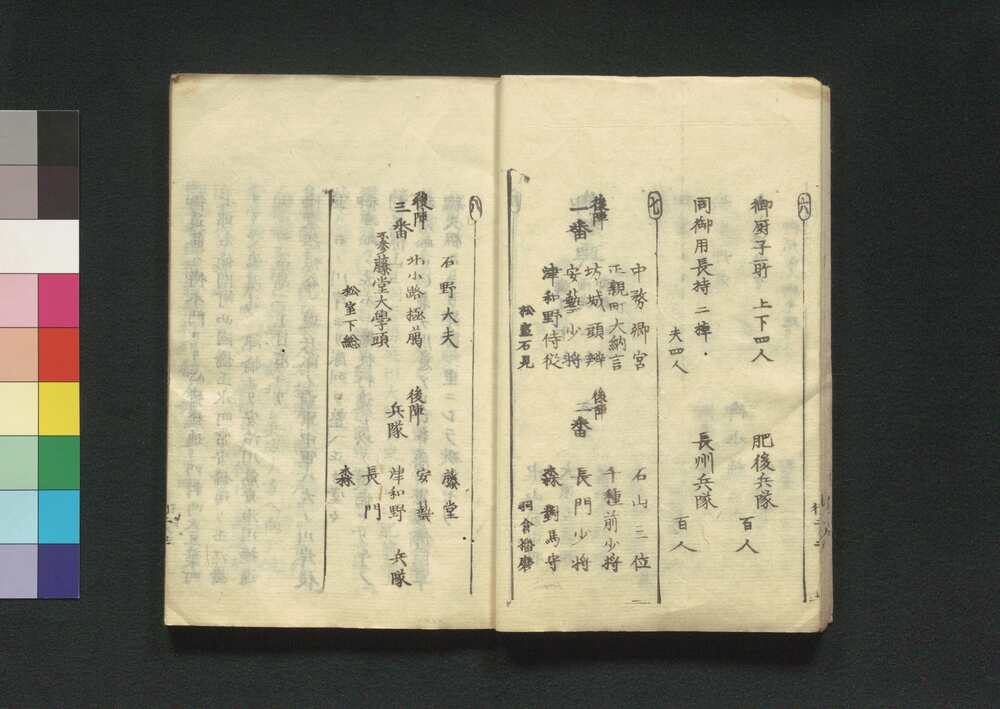 六
御厨子所 上下四人
肥後兵隊
百人
同御用長持 二棹
夫四人
長州兵隊
百人
七
中務卿宮
正親町大納言
後陣
一番
坊城頭辨
安藝少将
津和野侍従
松室石見
石山三位
千種前少将
後陣
二番
長門少将
森對馬守
羽倉播磨
八
石野大夫
後陣
三番
北小路極﨟
不参藤堂大學頭
松室下総
後陣
兵隊
藤堂
安藝
津和野
長門
森
兵隊